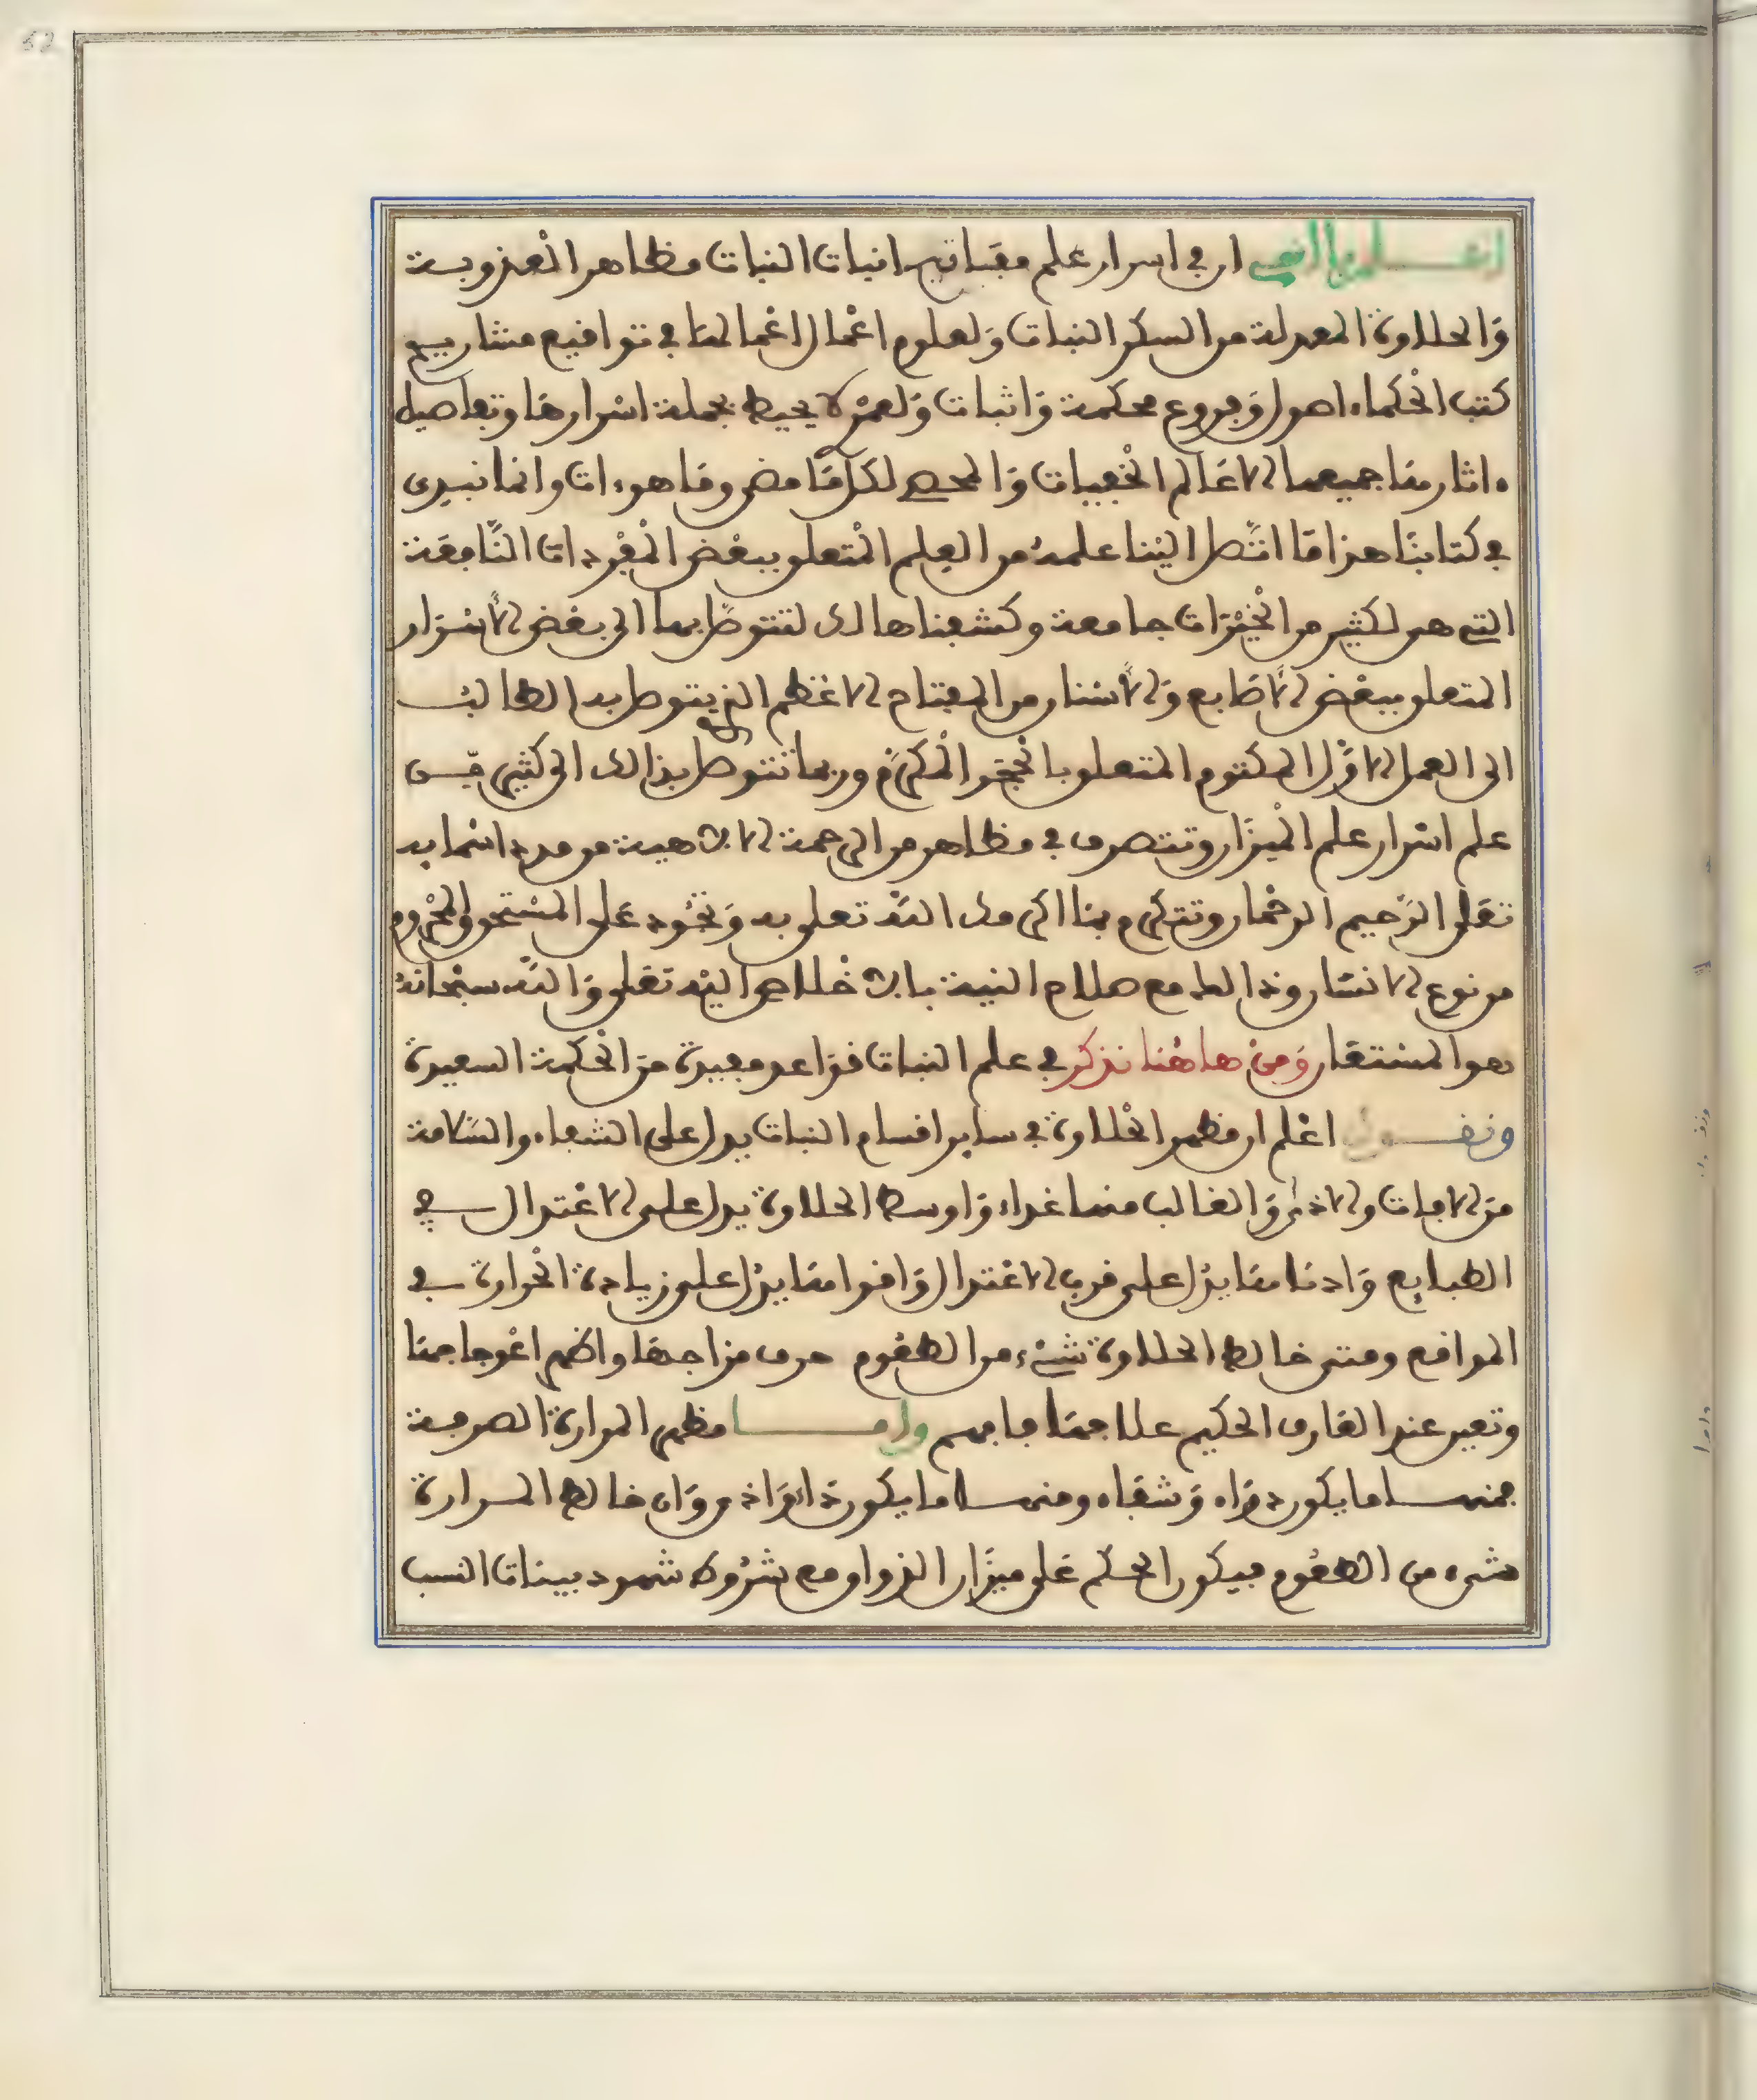 اعلم يا اخي ان في اسرار علم مفاتيح انبات النبات مظاهر العذوبة
والحلاوة المعدلة من السكر النبات ولعلوم اعمال اعمالها في تواقيع مشاريح
كتب الحكماء اصول وفروع محكمة واثبات ولعمري لا يحيط بجملة اسرارها وتفاصيل
ءاثارها جميعها الا عالم الخفيات والمحصي لكل ما مضى وما هو ءات وانما نبدي
في كتابنا هذا ما اتصل الينا علمه من العلم المتعلق ببعض المفردات النافعة
التي هي لكثير من الخيرات جامعة وكشفنا ذالك لتتوصل بها الى بعض الاسرار
المتعلق ببعض الاصابع والاسنان من المفتاح الاعظم الذي يتوصل به الطالب
الى العمل الاول المكتوم المتعلق بالحجر المكرم وربما تتوصل بذالك الى كثير من
علم اسرار علم الميزان وتتصرف في مظاهر من الرحمة الالاهية من مدد اسمايه
تعلى الرحيم الرحمان وتتكرم بما اكرمك الله تعلى به وتجود على المستحق والمحروم
من نوع الانسان وذالك مع صلاح النية بالاخلاص اليه تعلى والله سبحانه
هو المستعان ومن هاهنا نذكر في علم النبات قواعد مفيدة من الحكمة السعيدة
ونقول اعلم ان مظهر الحلاوة في ساير اقسام النبات يدل على الشفاء والسلامة
من الافات والاذى والغالب منها غذاء واوسط الحلاوة يدل على الاعتدال في
الطبايع وادناها يدل على قرب الاعتدال واقواها يدل على زيادة الحرارة في
المواقع ومتى خالط الحلاوة شيء من الطعوم حرف مزاجها واظهر اعوجاجها
وتعين عند العارف الحكيم علاجها فافهم واما مظهر المرارة الصرفة
فمنها ما يكون دواء وشفاء ومنها ما يكون داء واذى وان خالط المرارة
شيء من الطعوم فيكون الحكم على ميزان الذواق مع شروط شهود بينات النسب